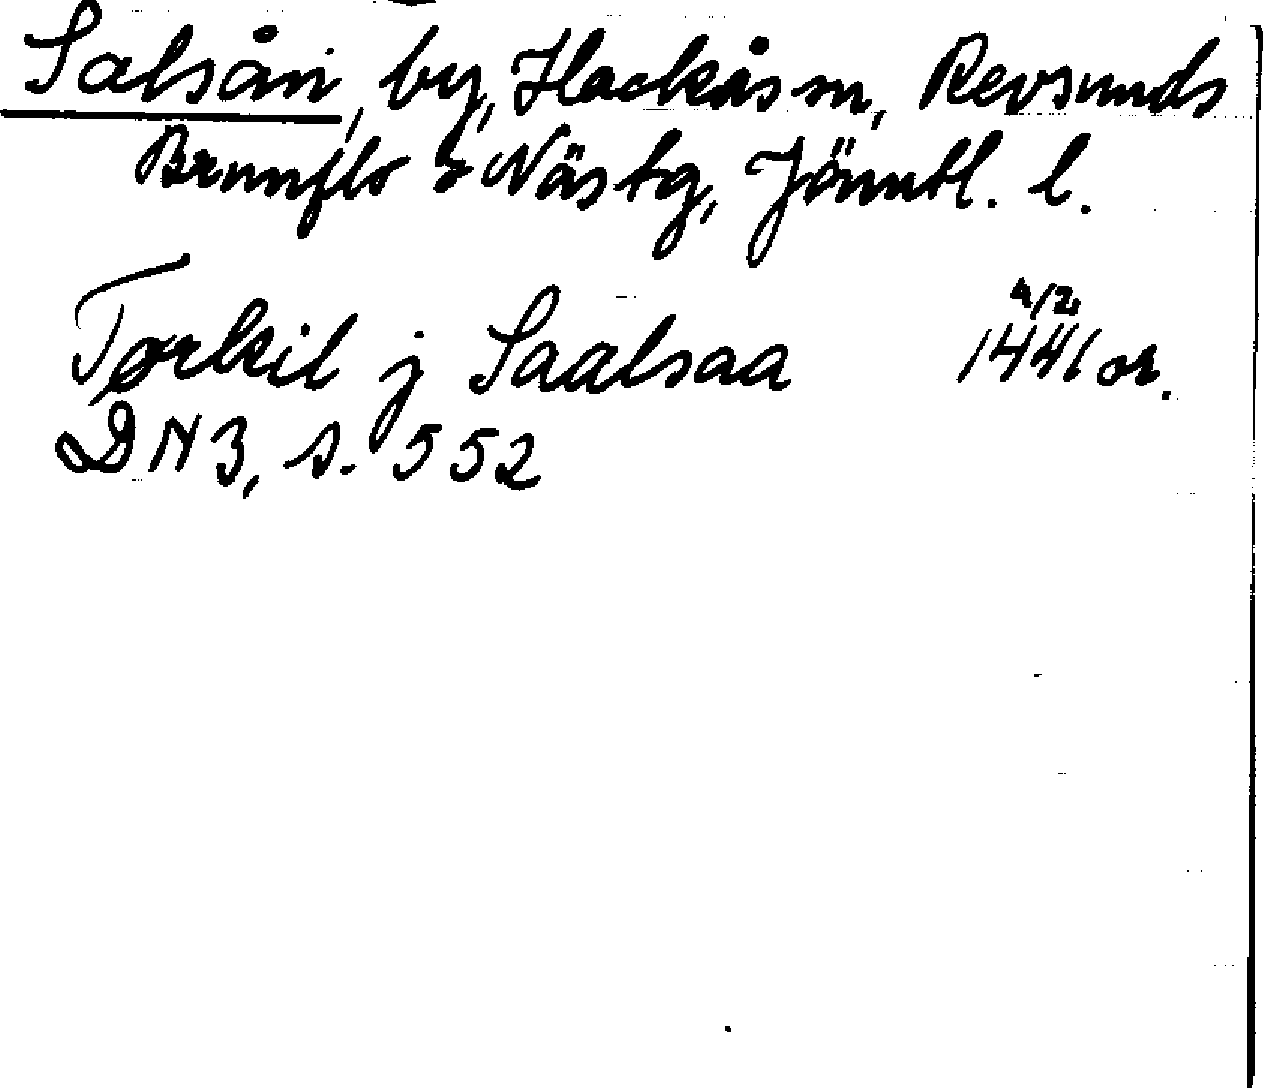 Salsån, by, Hackås sn, Revsunds
Brunflo & Näs tg, Jämtl. l.
4/2
Tørkil j Saalsaa 1441 or.
DN 3, s. 552